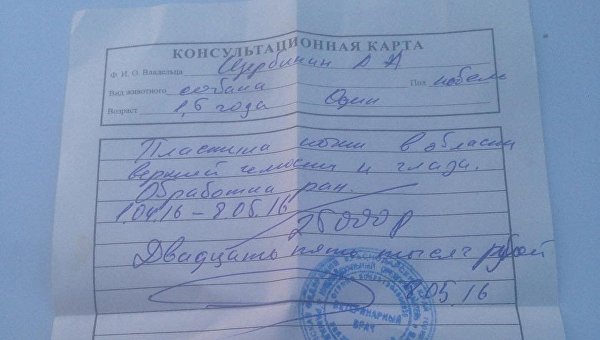 КОНСУЛЬТАЦИОННАЯ КАРТА
Ф. И. О. Владельца Щербинин А А
Вид животного собака Пол кобель
Возраст 1,5 года Один
Пластика кожи в области
верхней челюсти и глаза.
Обработка ран.
1.04.16 – 8.05.16
25000р
Двадцать пять тысяч рублей
8.05.16
ВЕТЕРИНАРНЫЙ
ВРАЧ